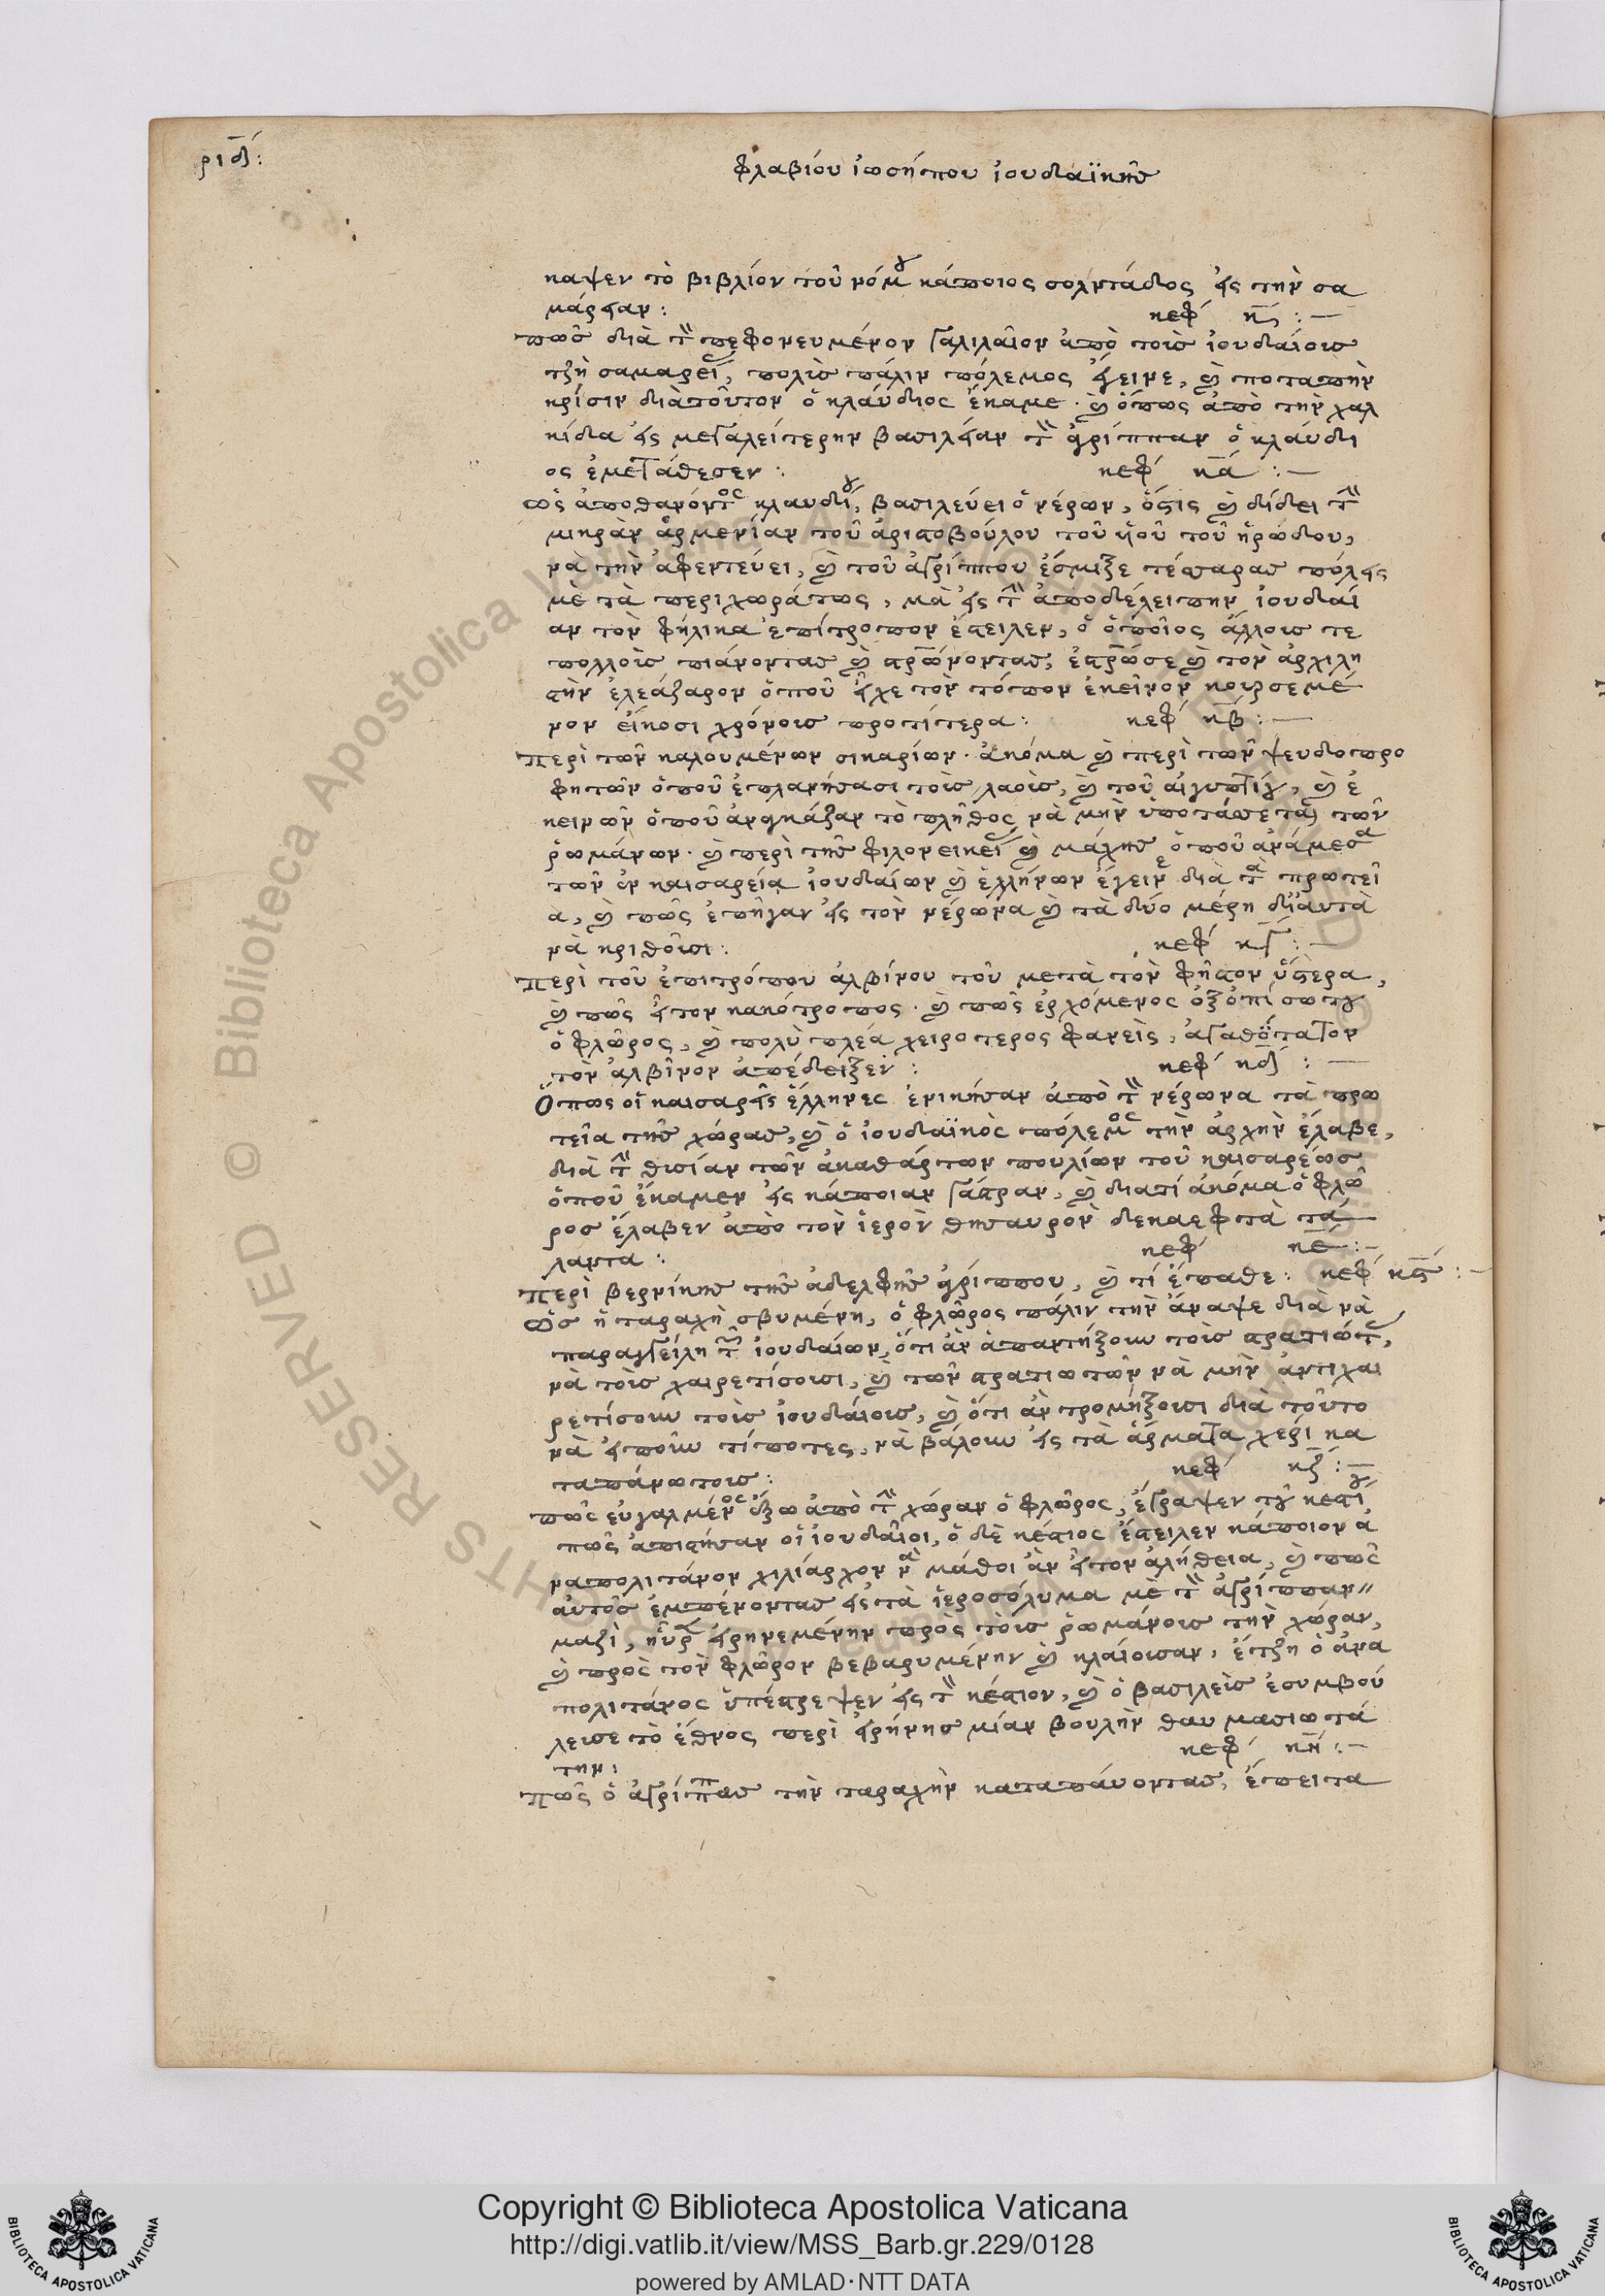 ριδ:
φλαβίου ἰωσήπου ἰουδαϊκῆς
καψεν τὸ βιβλίον τοῦ νόμου κάποιος σολντάδος εἰς τὴν σα
μάρειαν: κεφ κ :—
πῶς διὰ τὸν πεφονευμένον γαλιλαῖον ἀπὸ τοὺς ἰουδαίους
τζὴ σαμαρεῖ, πολὺς πάλιν πόλεμος ἔγεινε, καὶ ποταπὴν
κρίσιν διὰ τοῦτον ὁ κλάυδιος ἔκαμε. καὶ ὅπως ἀπὸ τὴν χαλ
κίδα εἰς μεγαλείτερην βασιλείαν τὸν ἀγρίππαν ὁ κλάυδι
ος ἐμετάθεσεν: κεφ κα :—
ὡς ἀποθανόντος κλαυδίου, βασιλεύει ὁ νέρων, ὅστις καὶ δίδει τὴν
μικρὰν ἀρμενίαν τοῦ ἀριστοβούλου τοῦ υἱοῦ τοῦ ἡρώδου,
νὰ τὴν ἀφεντεύει, καὶ τοῦ ἀγρίππου ἔσμιξε τέσσαρας πόλεις
μὲ τὰ περιχωράτως, μὰ εἰς τὴν ἀποδέλειπην ἰουδαί
αν τὸν φήλικα ἐπίτροπον ἔστειλεν, ὁ ὁποῖος ἄλλους τε
πολλοὺς πιάνοντας καὶ στρώνοντας, ἐστρῶσε καὶ τὸν ἀρχιλη
στὴν ἐλεάζαρον ὁποῦ εἶχε τὸν τόπον ἐκεῖνον κουρσεμέ
νον εἴκοσι χρόνους προτίτερα: κεφ κβ :—
περὶ τῶν καλουμένων σικαρίων. ἀκόμα καὶ περὶ τῶν ψευδοπρο
φητῶν ὁποῦ ἐπλανήσασι τοὺς λαοὺς, καὶ τοῦ αἰγυπτίου, καὶ ἐ
κεινῶν ὁποῦ ἀνγκάζαν τὸ πλῆθος νὰ μὴν ὑποτάσσεται τῶν
ῥωμάνων. καὶ περὶ τῆς φιλονεικεί καὶ μάχης ὁποῦ ἀνάμεσα
τῶν ἐν καισαρεία ἰουδαίων καὶ ἑλλήνων ἔγεινε διὰ τὰ πρωτεῖ
α, καὶ πῶς ἐπῆγαν εἰς τὸν νέρωνα καὶ τὰ δύο μέρη διαυτὰ
νὰ κριθοῦσι: κεφ κγ :—
περὶ τοῦ ἐπιτρόπου ἀλβίνου τοῦ μετὰ τὸν φῆστον ὕστερα,
καὶ πῶς εἶτον κακότροπος. καὶ πῶς ἐρχόμενος ὀξοπίσωτου
ὁ φλῶρος, καὶ πολὺ πλεά χειρότερος φανεὶς, ἀγαθότατον
τὸν ἀλβῖνον ἀπέδειξεν: κεφ κδ :—
ὅπως οἱ καισαρεῖς ἕλληνες ἐνικήσαν ἀπὸ τὸν νέρωνα τὰ πρω
τεῖα τῆς χώρας, καὶ ὁ ἰουδαϊκὸς πόλεμος τὴν ἀρχὴν ἔλαβε,
διὰ τὴν θυσίαν τῶν ἀκαθάρτων πουλίων τοῦ καισαρέως
ὁποῦ ἔκαμεν εἰς κάποιαν γάστραν, καὶ διατί ἀκόμα ὁ φλῶ
ρος ἔλαβεν ἀπὸ τὸν ἱερὸν θησαυρὸν δεκαεφτὰ τά
λαντα: κεφ κε :—
περὶ βερνίκης τῆς ἀδελφῆς ἀγρίππου, καὶ τί ἔπαθε: κεφ κϛ :—
ὡς ἡ ταραχὴ σβυμένη, ὁ φλῶρος πάλιν τὴν ἄναψε διὰ νὰ
παραγγείλη τῶν ἰουδαίων, ὅτι ἂν ἀπαντήξουν τοὺς στρατιώτ,
νὰ τοὺς χαιρετίσουσι, καὶ τῶν στρατιωτῶν νὰ μὴν ἀντιχαι
ρετίσουν τοὺς ἰουδαίους, καὶ ὅτι ἂν τρομήξουσι διὰ τοῦτο
νὰ εἰποῦν τίποτες, νὰ βάλουν εἰς τὰ ἄρματα χέρι κα
ταπάνωτους: κεφ κζ :—
πῶς εὐγαλμένος ὄξω ἀπὸ τὴν χώραν ὁ φλῶρος, ἔγραψεν τοῦ κεστίου
πῶς ἀπιστήσαν οἱ ἰουδαῖοι, ὁ δὲ κέστιος ἔστειλεν κάποιον ἀ
ναπολιτάνον χιλίαρχον νὰ μάθοι ἂν εἶτον ἀλήθεια, καὶ πῶς
αὐτὸς ἐμπένοντας εἰς τὰ ἱεροσόλυμα μὲ τὸν ἀγρίππαν
μαζὶ, ηὗρε εἰρηνεμένην πρὸς τοὺς ῥωμάνους τὴν χώραν,
καὶ πρὸς τὸν φλῶρον βεβαρυμένην καὶ κλαίουσαν, ἔτζη ὁ ἀνα
πολιτάνος ὑπέστρεψεν εἰς τὸν κέστιον, καὶ ὁ βασιλεὺς ἐσυμβού
λευσε τὸ ἔθνος περὶ εἰρήνης μίαν βουλὴν θαυμασιωτά
την: κεφ κη :—
πῶς ὁ ἀγρίππας τὴν ταραχὴν καταπάυοντας, ἔπειτα
Copyright © Biblioteca Apostolica Vaticana
http://digi.vatlib.it/view/MSS_Barb.gr.229/0128
powered by AMLAD·NTT DATA